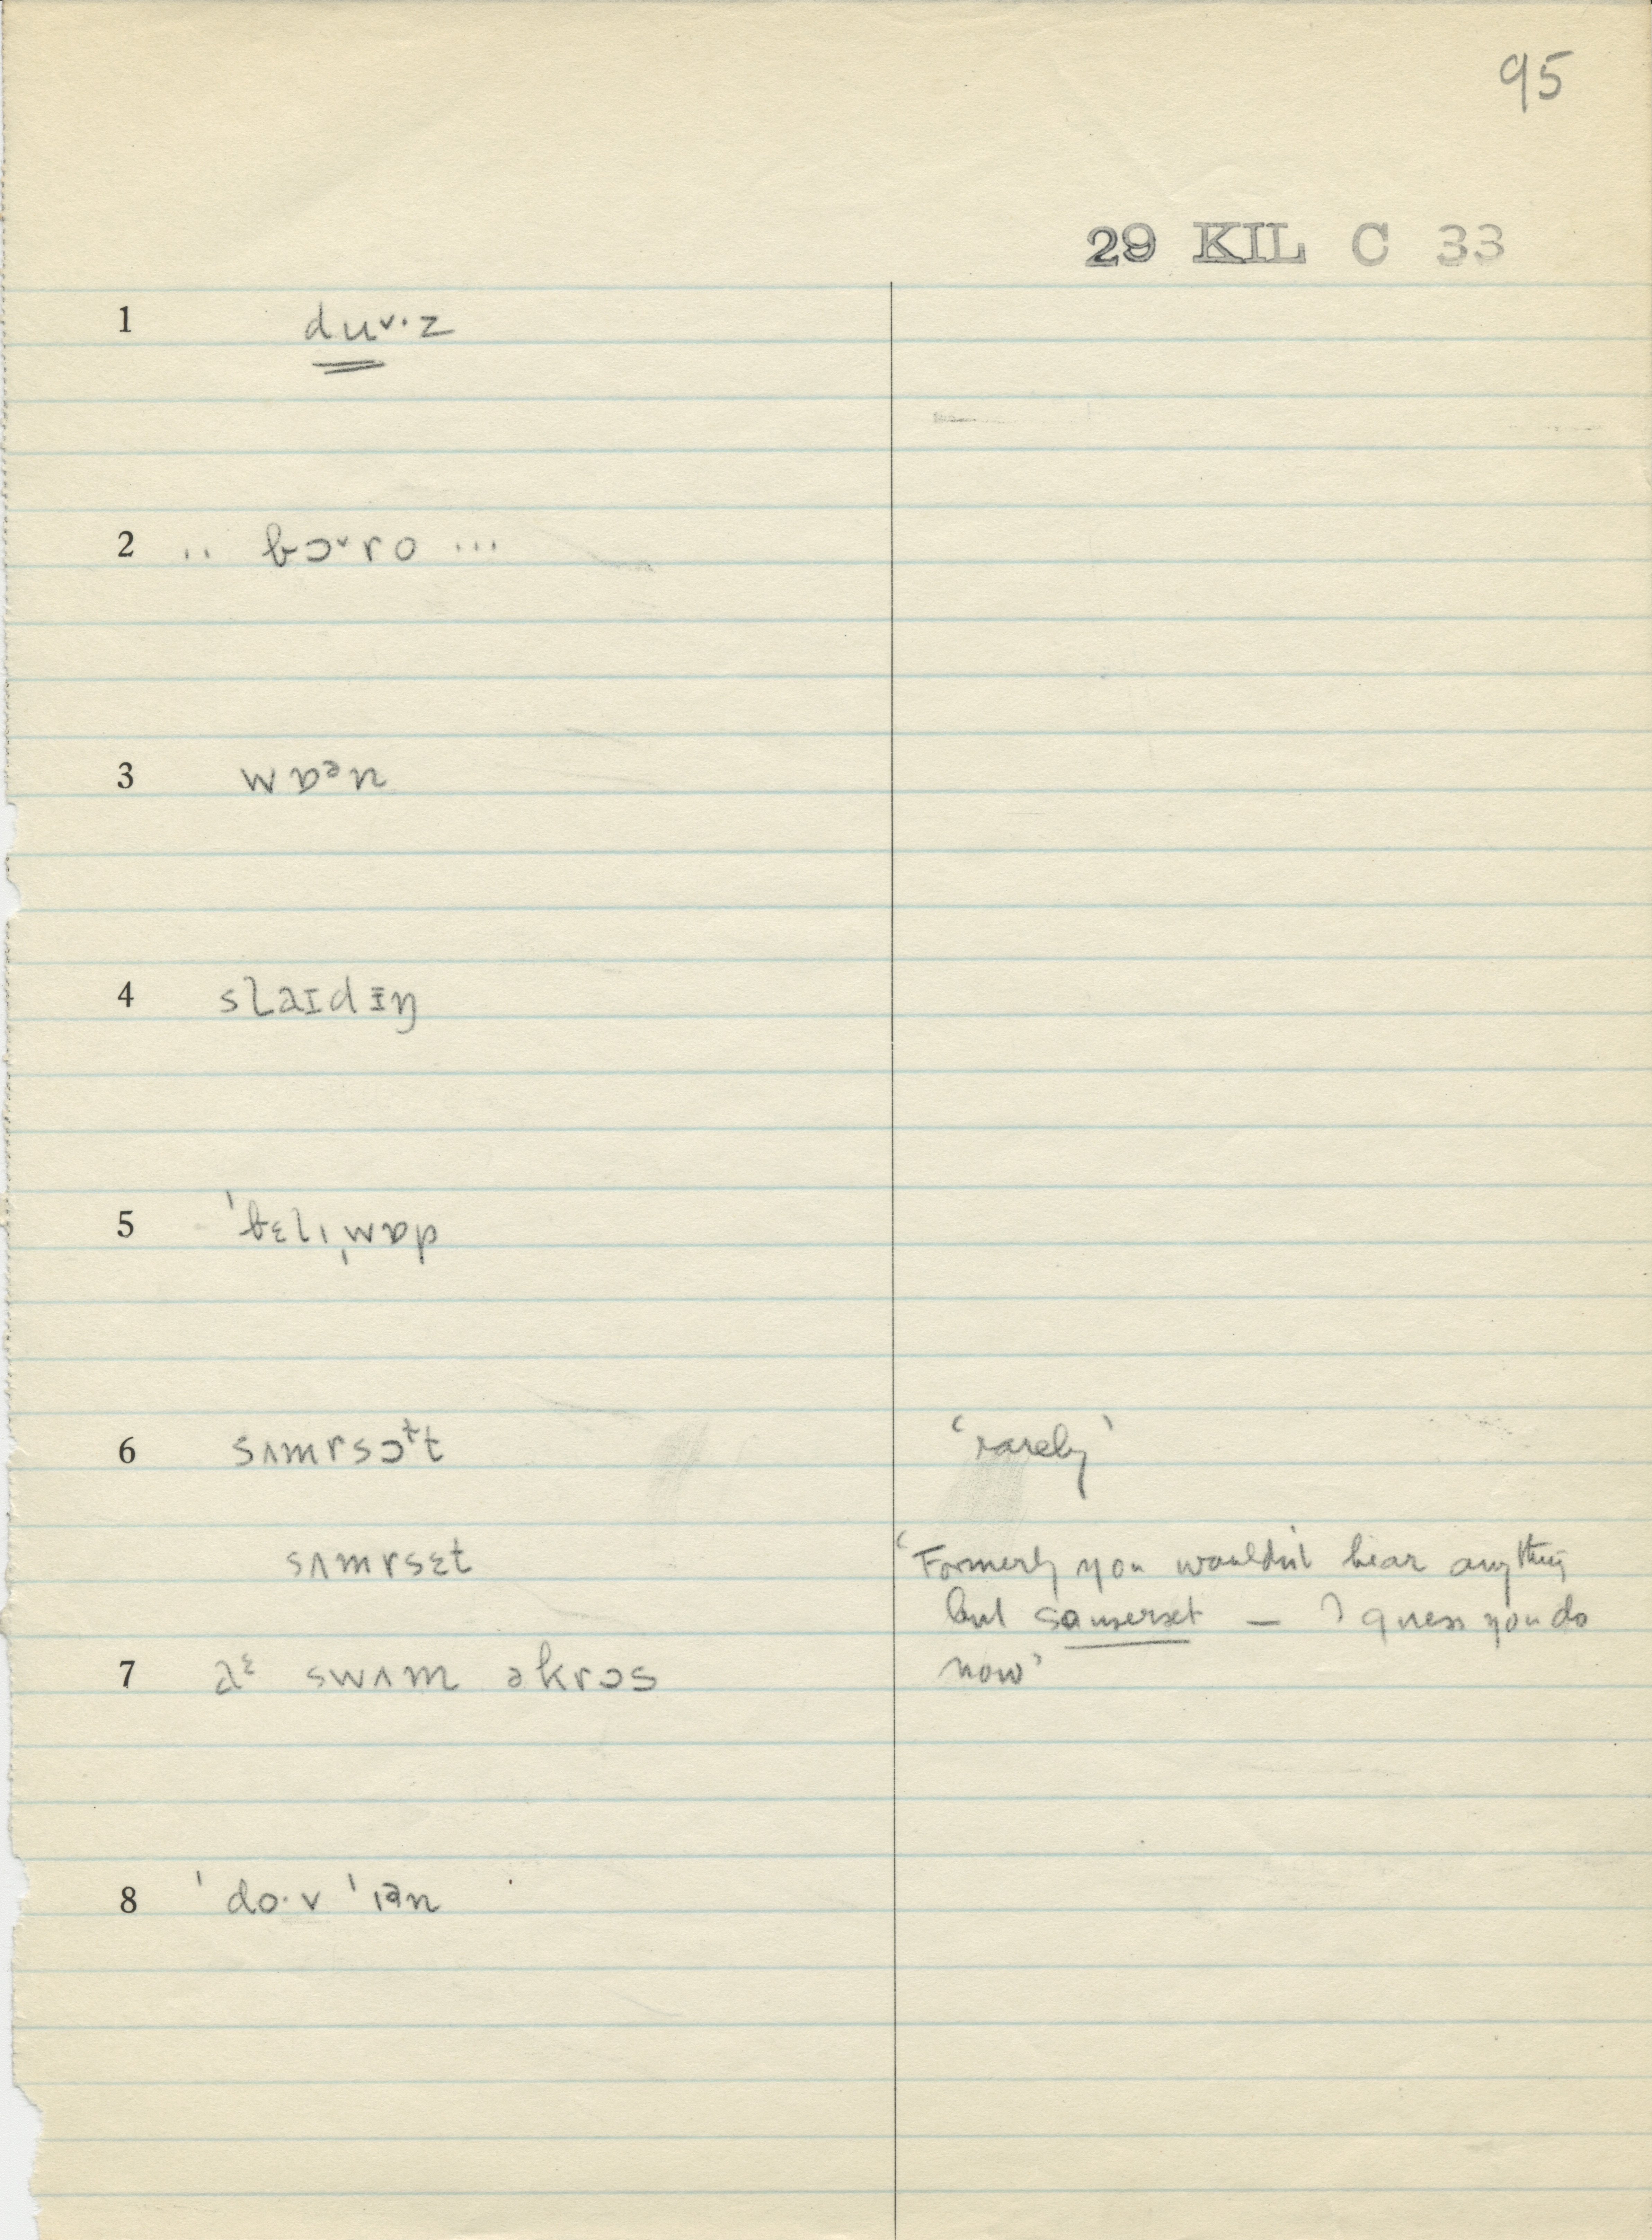 95
29 KIL C 33
1 duᵛ·z
2 .. bɔᵛro ...
3 wɒᵊn
4 slaɪdɪŋ
5 ˈbɛlɪˌwɒp
6 sʌmrsɔᵗt 'rarely'
sʌmrsɛt 'Formerly you wouldn't hear anything
but somerset — I guess you do
7 aᵋ swʌm əkrɔs now'
8 ˈdo·v ˈɪᵊn